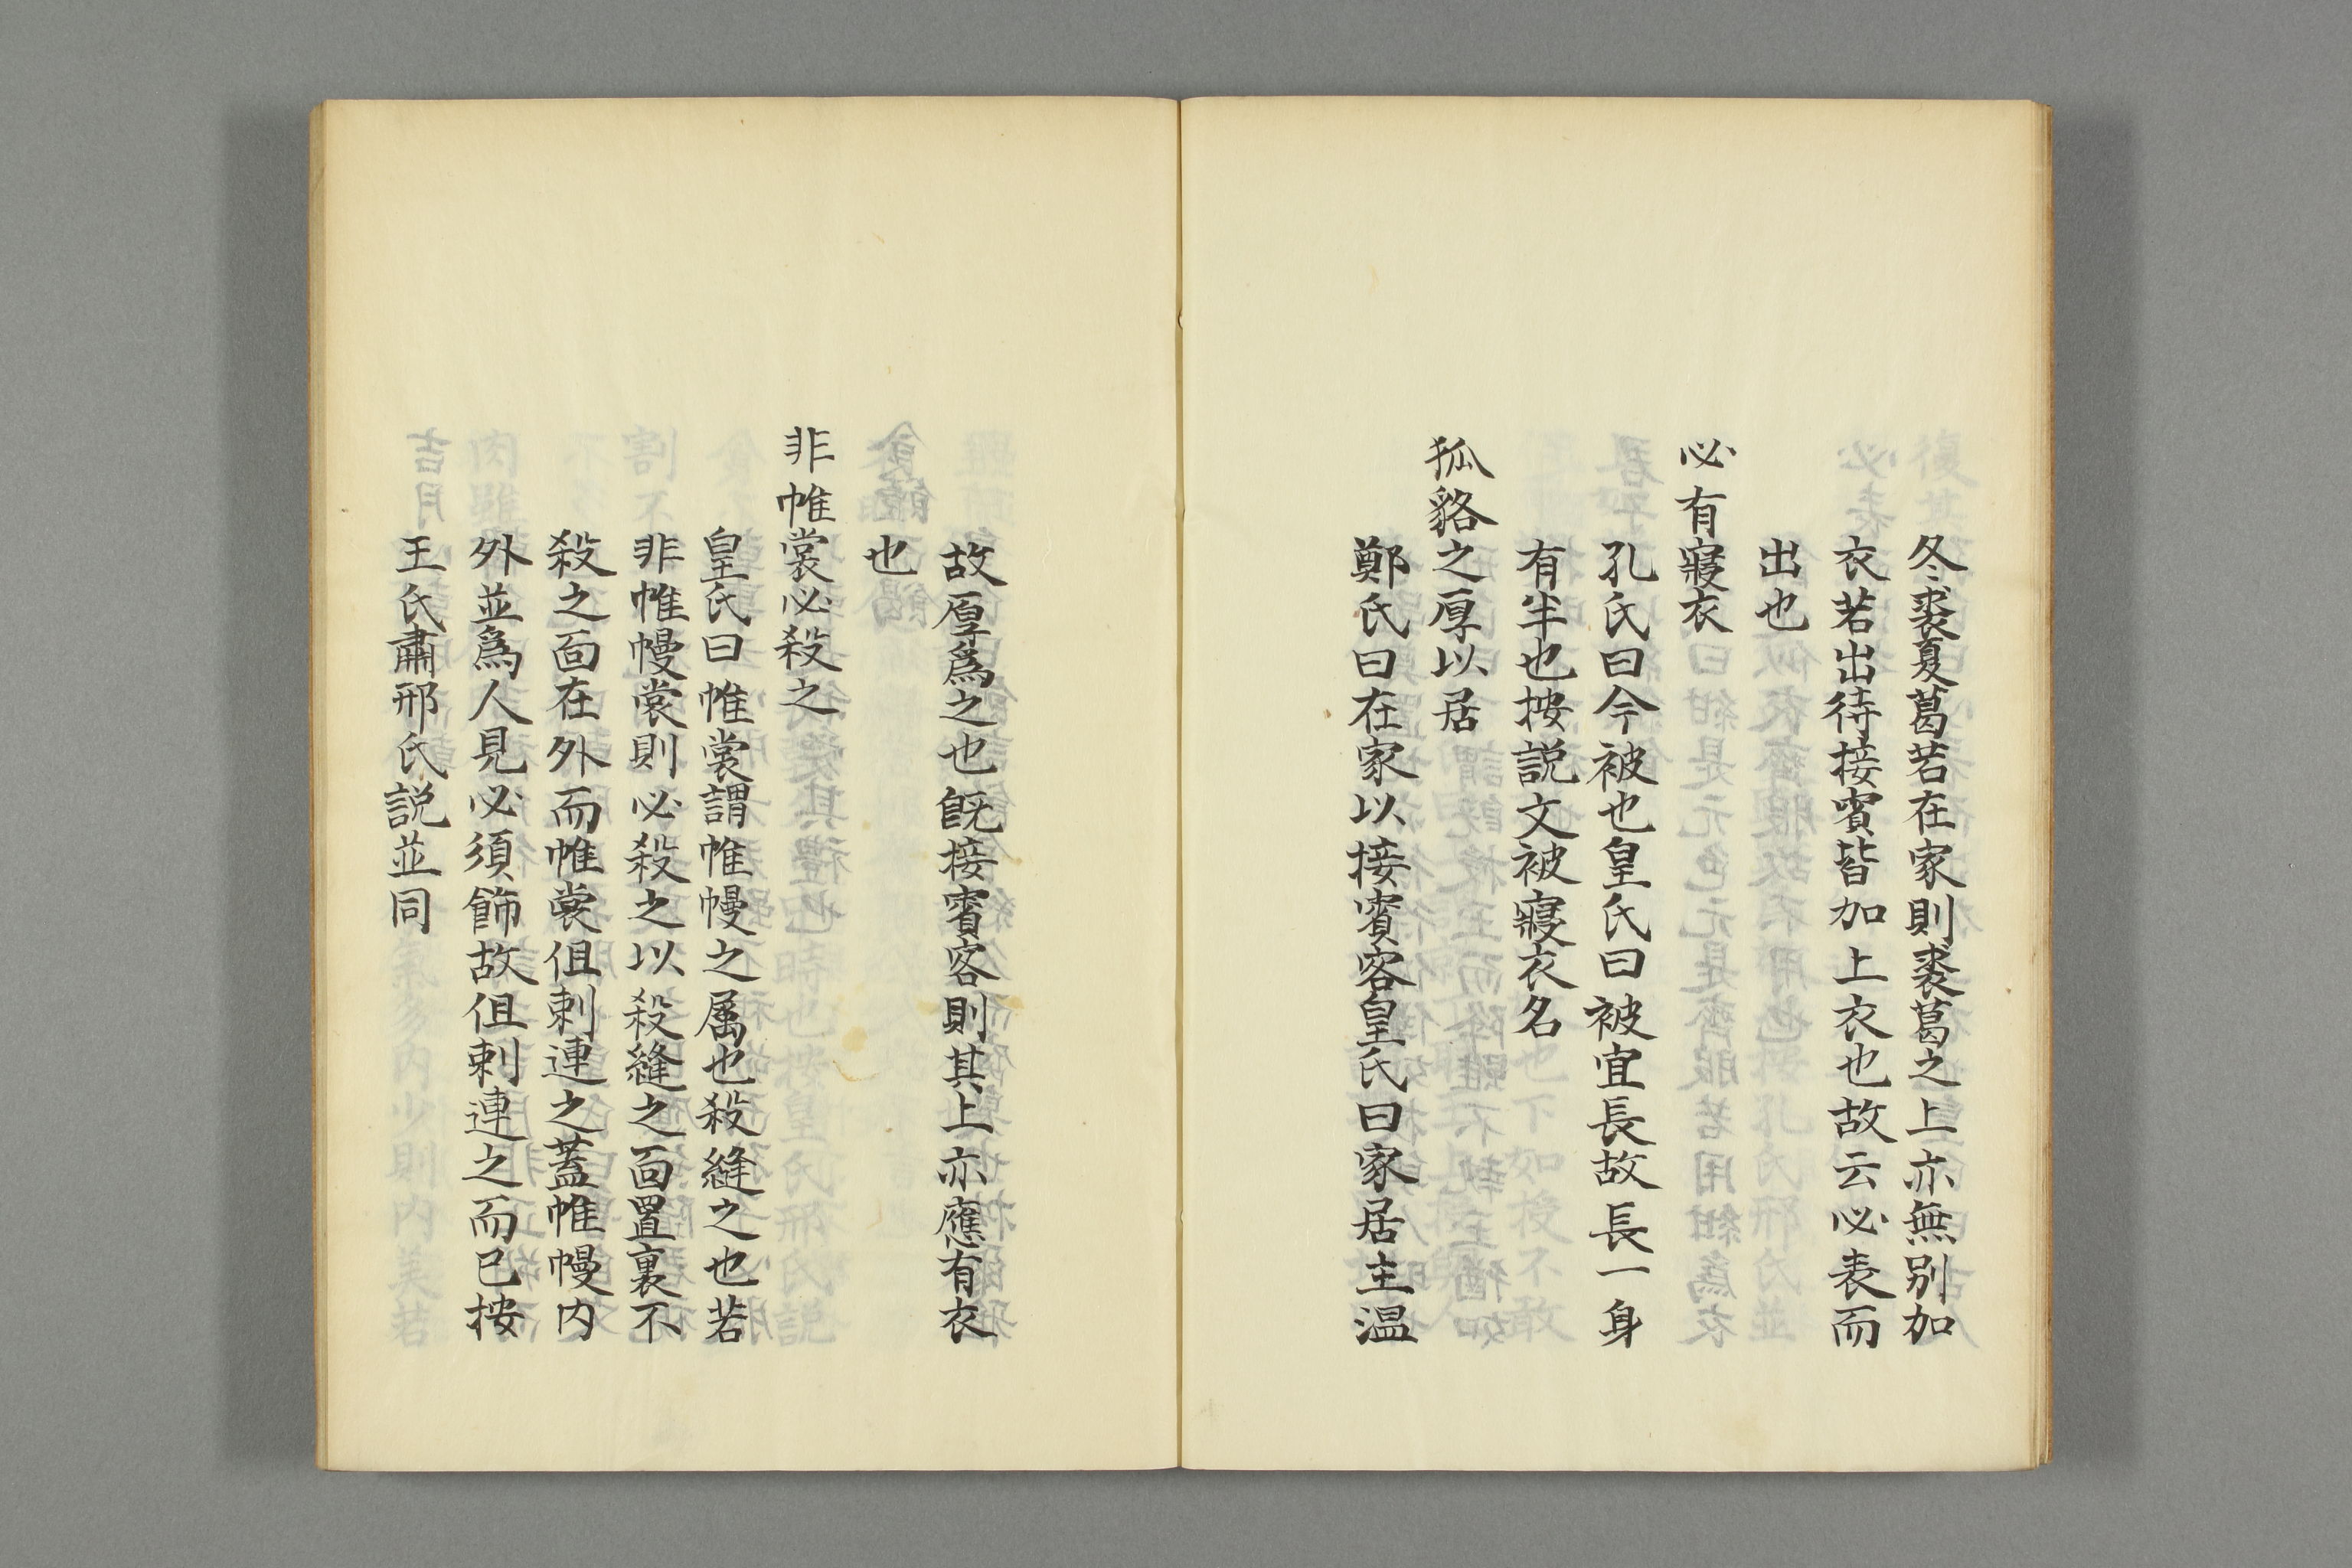 冬裘夏葛若在家則裘葛之上亦無別加
衣若出待接賓皆加上衣也故云必表而
出也
必有寢衣
孔氏曰今被也皇氏曰被宜長故長一身
有半也按説文被寢衣名
狐貉之厚以居
鄭氏曰在家以接賓客皇氏曰家居主温
故厚爲之也既接賓客則其上亦應有衣
也
非帷裳必殺之
皇氏曰帷裳謂帷幔之属也殺縫之也若
非帷幔裳則必殺之以殺縫之面置裏不
殺之面在外而帷裳但刺連之蓋帷幔内
外並爲人見必須飾故但刺連之而已按
王氏肅邢氏説並同